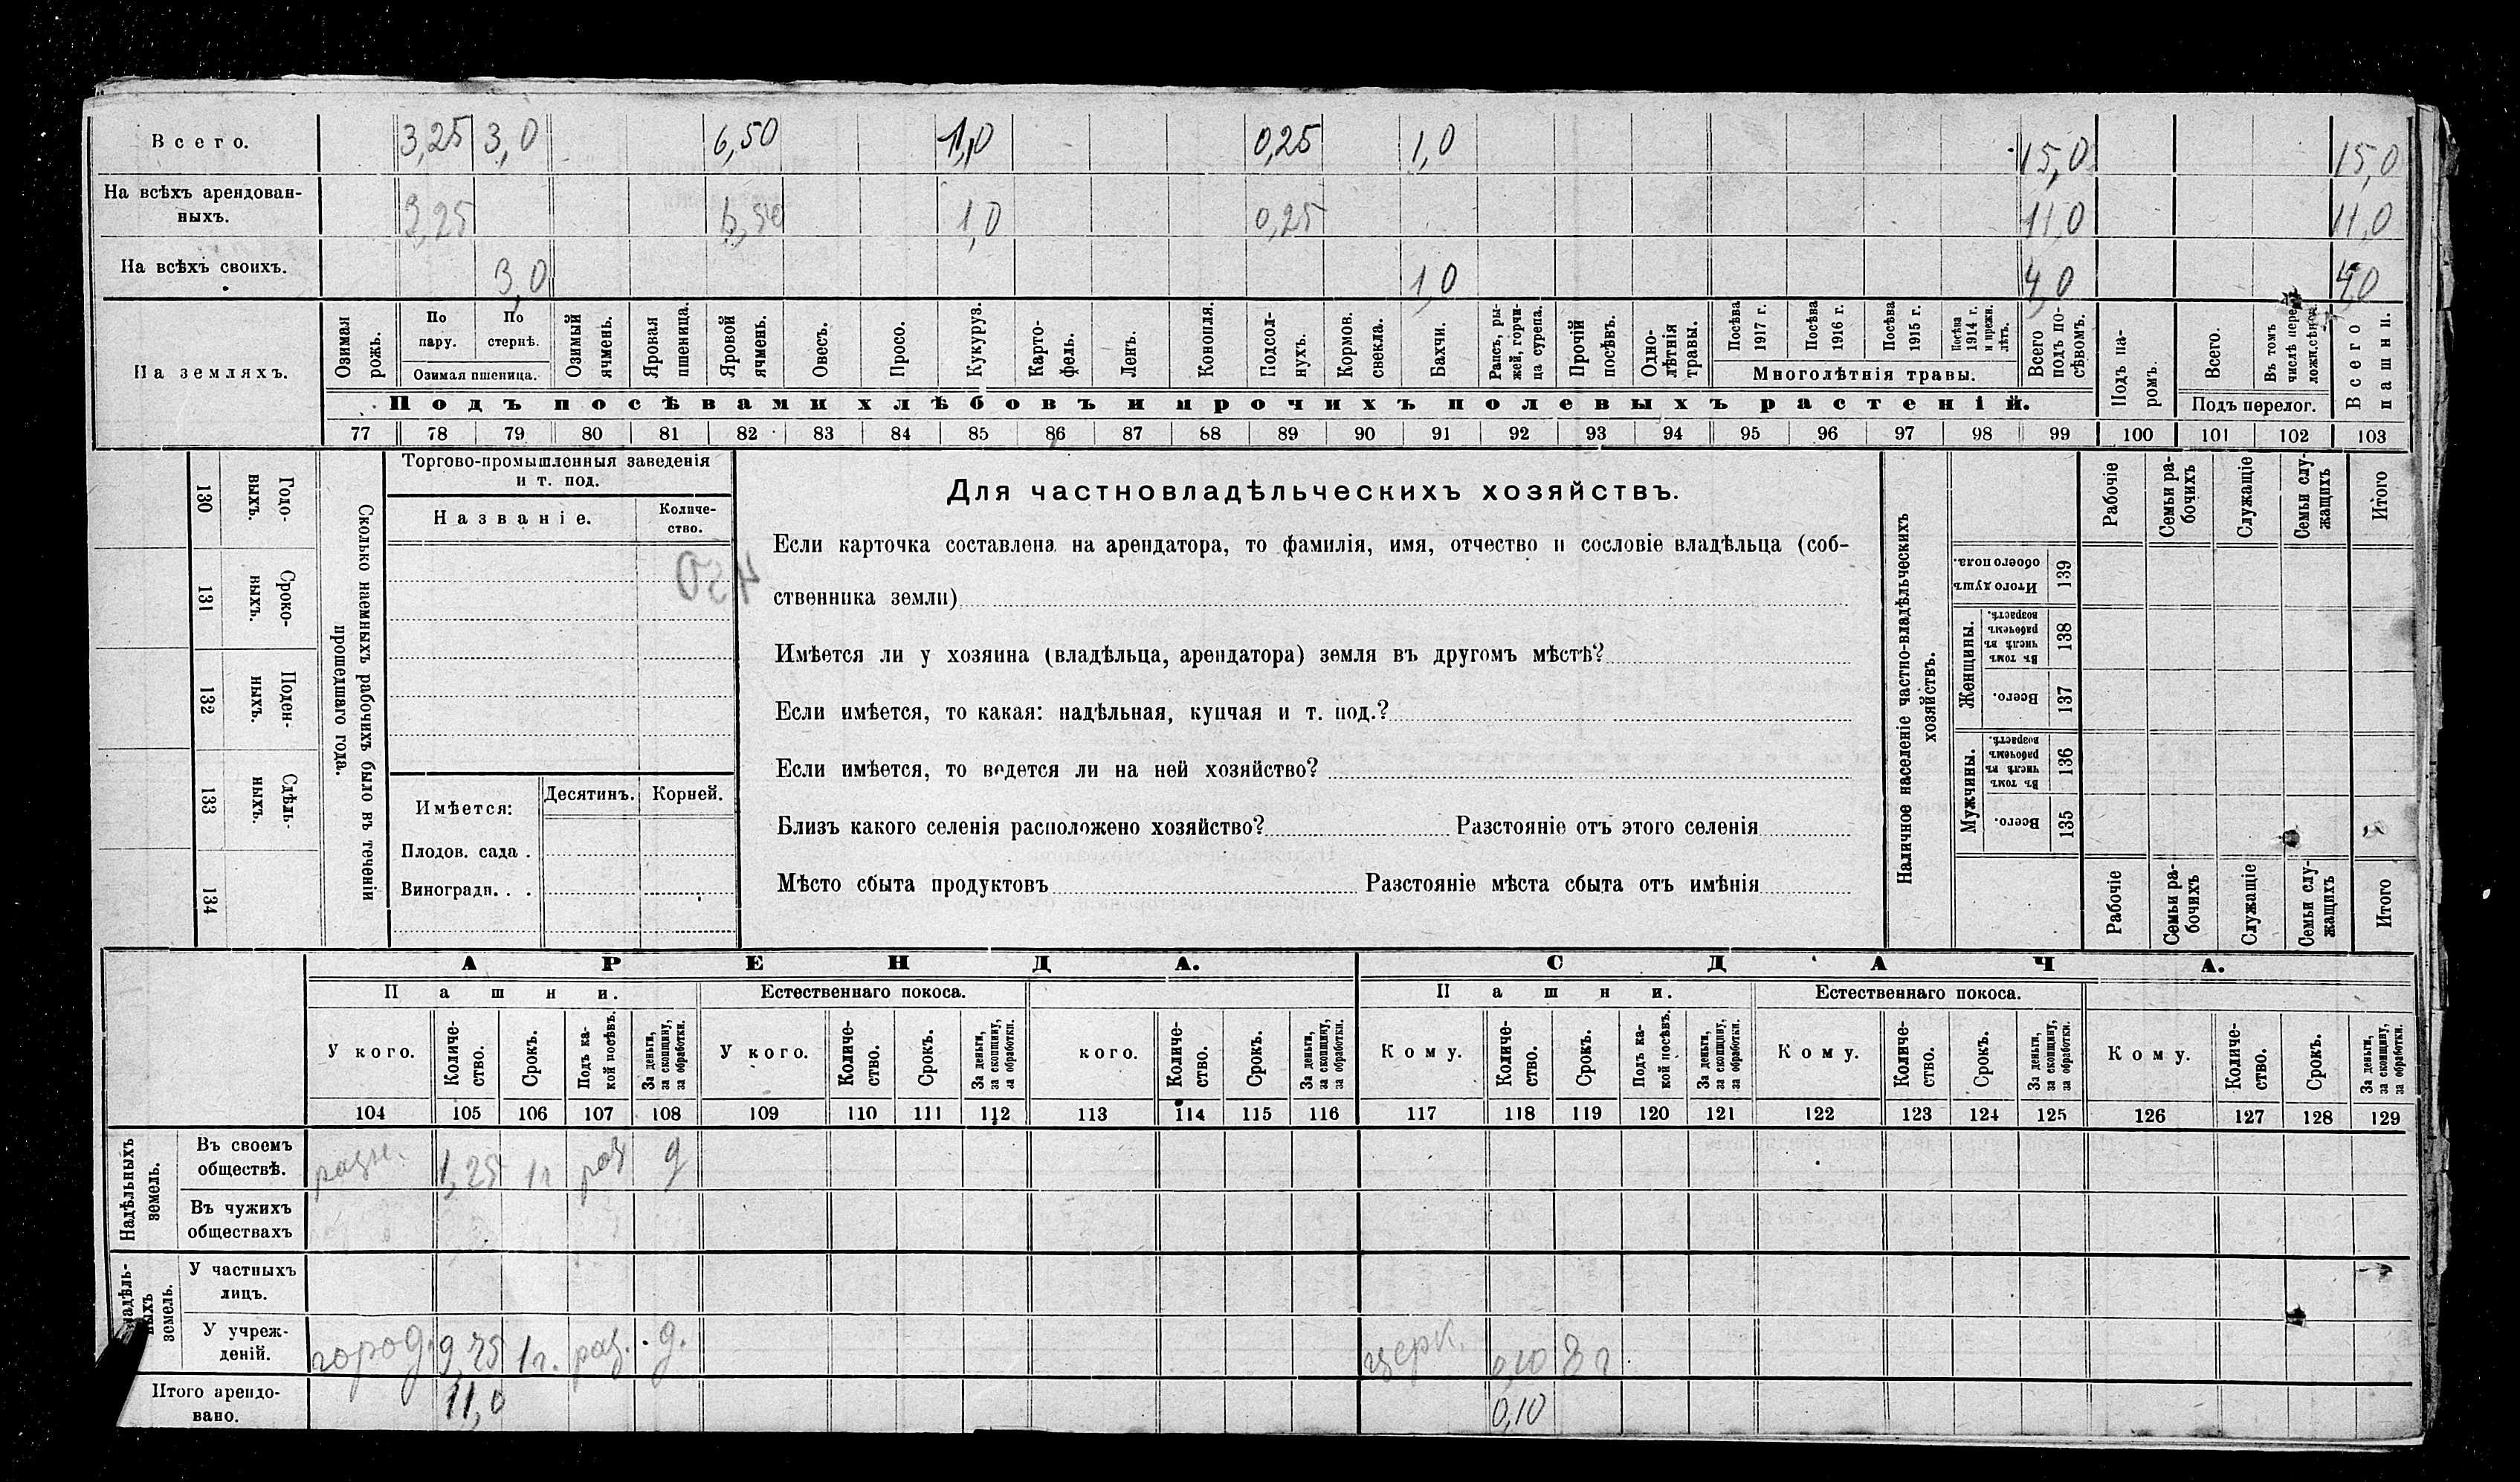 Всего. 3,25 3,0 6,50 1,0 0,25 1,0 15,0 15,0
На всѣхъ арендован-
ныхъ. 3,25 6,50 1,0 0,25 11,0 11,0
На всѣхъ своихъ. 3,0 1,0 4,0 4,0
На земляхъ.
Озимая рожь.
По пару.
По стернѣ.
Озимая пшеница.
Озимый ячмень.
Яровая пшеница.
Яровой ячмень.
Овесъ.
Просо.
Кукуруз.
Карто-
фель.
Ленъ.
Конопля.
Подсол-
нухъ.
Кормов. свекла.
Бахчи.
Рапсъ, ры-
жей, горчи-
ца сурепа.
Прочій посѣвъ.
Одно-
лѣтнія травы.
Посѣва 1917 г.
Посѣва 1916 г.
Посѣва 1915 г.
Посѣва 1914 г. и прежн. лѣтъ.
Многолѣтнія травы.
Всего подъ по-
сѣвомъ.
Подъ па-
ромъ.
Всего.
Въ томъ числѣ пере-
ложн. сѣнок.
Подъ перелог.
Всего пашни.
Подъ посѣвами хлѣбовъ и прочихъ полевыхъ растеній.
77 78 79 80 81 82 83 84 85 86 87 88 89 90 91 92 93 94 95 96 97 98 99 100 101 102 103
130 Годо-
выхъ.
131 Сроко-
ныхъ.
132 Поден-
ныхъ.
133 Сдѣль-
ныхъ.
134
Сколько наемныхъ рабочихъ было въ теченіи
прошедшаго года.
Торгово-промышленныя заведенія
и т. под.
Названіе.
Количе-
ство.
450
Имѣется: Десятинъ. Корней.
Плодов. сада .
Виноградн. . .
Для частновладѣльческихъ хозяйствъ.
Если карточка составлена на арендатора, то фамилія, имя, отчество и сословіе владѣльца (соб-
ственника земли)
Имѣется ли у хозяина (владѣльца, арендатора) земля въ другомъ мѣстѣ?
Если имѣется, то какая: надѣльная, купчая и т. под.?
Если имѣется, то ведется ли на ней хозяйство?
Близъ какого селенія расположено хозяйство? Разстояніе отъ этого селенія
Мѣсто сбыта продуктовъ Разстояніе мѣста сбыта отъ имѣнія
Наличное населеніе частно-владѣльческихъ
хозяйствъ.
Рабочіе
Семьи ра-
бочихъ
Служащіе
Семьи слу-
жащихъ
Итого
Итого душъ обоего пола. 139
Женщины.
Въ томъ числѣ въ рабочемъ возрастѣ. 138
Всего. 137
Мужчины.
Въ томъ числѣ въ рабочемъ возрастѣ. 136
Всего. 135
Рабочіе
Семьи ра-
бочихъ
Служащіе
Семьи слу-
жащихъ
Итого
АРЕНДА. СДАЧА.
Пашни. Естественнаго покоса. Пашни. Естественнаго покоса.
У кого.
Количе-
ство.
Срокъ.
Подъ ка-
кой посѣвъ.
За деньги,
за скопщину,
за обработки.
У кого.
Количе-
ство.
Срокъ.
За деньги,
за скопщину,
за обработки.
кого.
Количе-
ство.
Срокъ.
За деньги,
за скопщину,
за обработки.
Кому.
Количе-
ство.
Срокъ.
Подъ ка-
кой посѣвъ.
За деньги,
за скопщину,
за обработки.
Кому.
Количе-
ство.
Срокъ.
За деньги,
за скопщину,
за обработки.
Кому.
Количе-
ство.
Срокъ.
За деньги,
за скопщину,
за обработки.
104 105 106 107 108 109 110 111 112 113 114 115 116 117 118 119 120 121 122 123 124 125 126 127 128 129
Надѣльныхъ
земель.
Въ своемъ
обществѣ. разн. 1,25 1г раз д
Въ чужихъ
обществахъ
земель.
У частныхъ
лицъ.
У учреж-
деній. город. 9,75 1г. раз. д. церк. 0,10 3 г
Итого арендо-
вано. 11,0 0,10